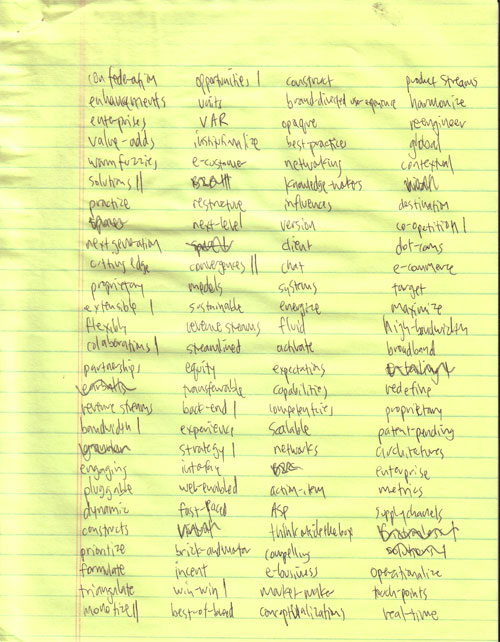 confederation opportunities | construct product streams
enhancements units brand-divided user experience harmonize
enterprises VAR opaque reengineer
value-adds institutionalize best-practice global
warm fuzzies e-customer networking contextual
solutions || knowledge-makers
practice restructure influences destination
next-level version co-opetition |
next generation client dot-coms
cutting edge convergences || chat e-commerce
proprietary models systems target
extensible | sustainable energize maximize
flexibly revenue streams fluid high-bandwidth
colaborations | streamlined activate broadband
partnership equity expectations
transferable capabilities redefine
revenue streams back-end | competencies proprietary
bandwidth | experience scalable patent-pending
strategy | networks architectures
engaging enterprise
pluggable web-enabled action-item metrics
dynamic fast-paced ASP supply channels
constructs think outside the box
prioritize brick-and-mortar compelling
formulate incent e-business operationalize
triangulate win-win | market-maker touch-points
monotize || best-of-breed conceptualizations real-time